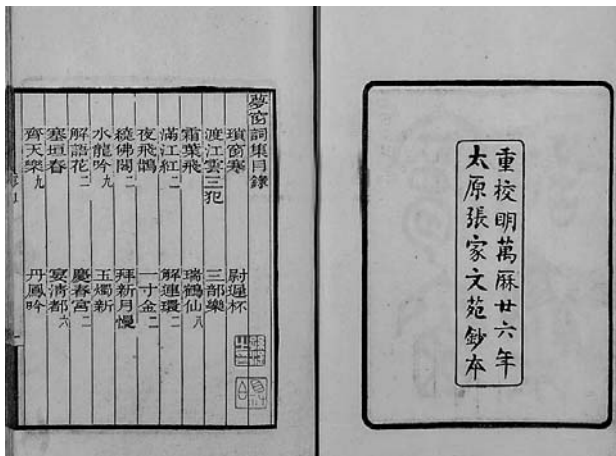 重校明萬厤廿六年
太原張家文苑鈔本
夢窗詞集目錄
瑣窗寒
尉遲杯
渡江雲三犯
三部樂
霜葉飛
瑞鶴仙八
滿江紅二
解連環二
夜飛鵲
一寸金二
繞佛閣二
拜新月慢
水龍吟九
玉燭新
解語花二
慶春宮二
塞垣春
宴清都六
齊天樂九
丹鳳吟